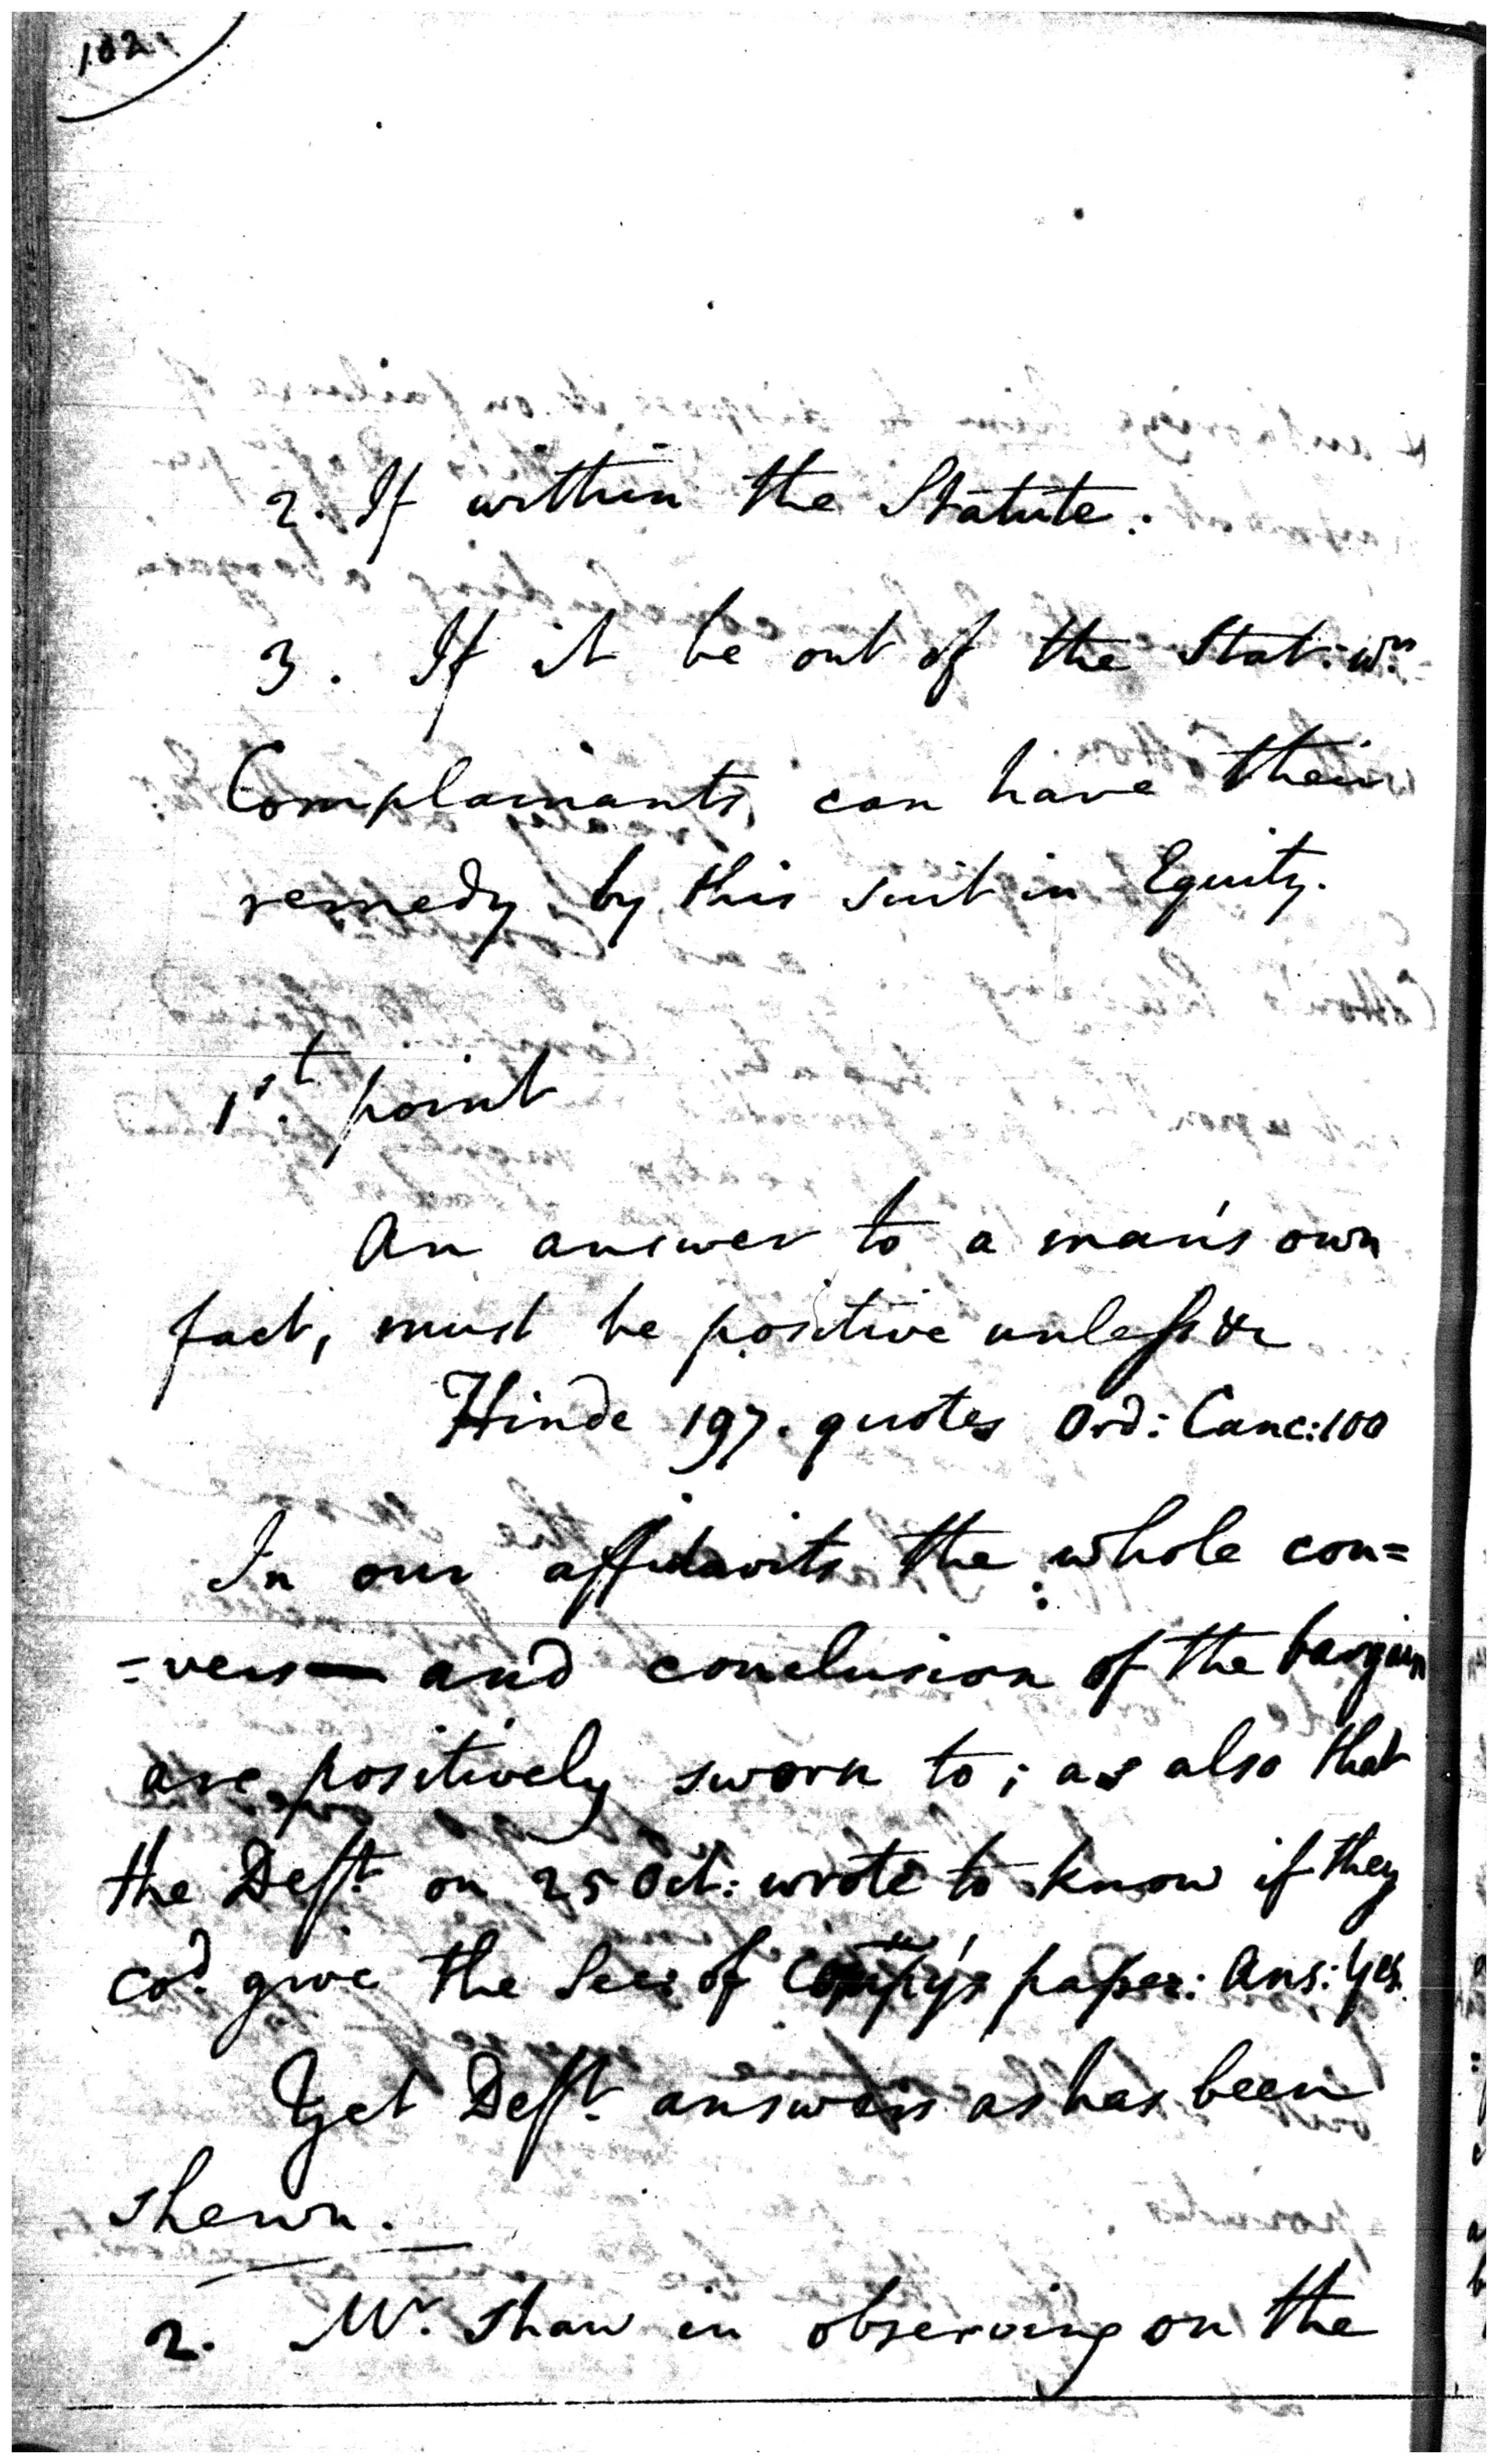 102
2. If within the Statute.
3. If it be out of the Stat: wr.
Complainants can have their
remedy by this suit in Equity.
1st. point
An answer to a man's own
fact, must be positive unless &c
Hinde 197. quotes Ord: Canc: 100
In our affidavits the whole con=
=vers— and conclusion of the bargain
are positively sworn to; as also that
the Deft. on 25 Oct: wrote to know if they
cod. give the Sec: of Compy's paper: Ans: Yes.
Yet Deft. answers as has been
shewn.
2. Mr. Shaw in observing on the